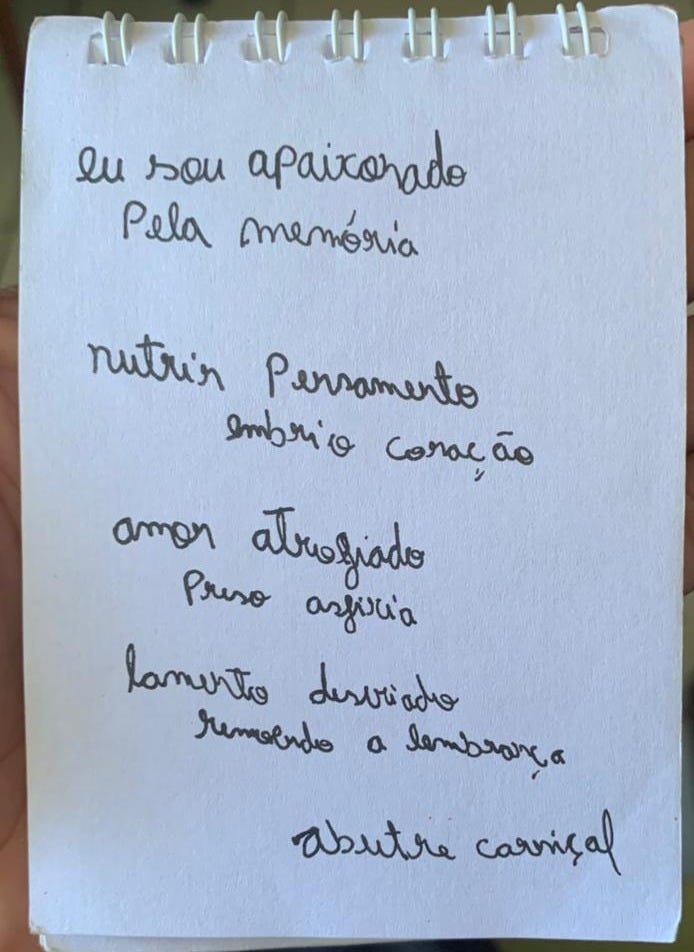 eu sou apaixonado
Pela memória
nutrir Pensamento
embrio coração
amor atrofiado
Preso asfixia
lamento desviado
remoendo a lembrança
abutre carniçal